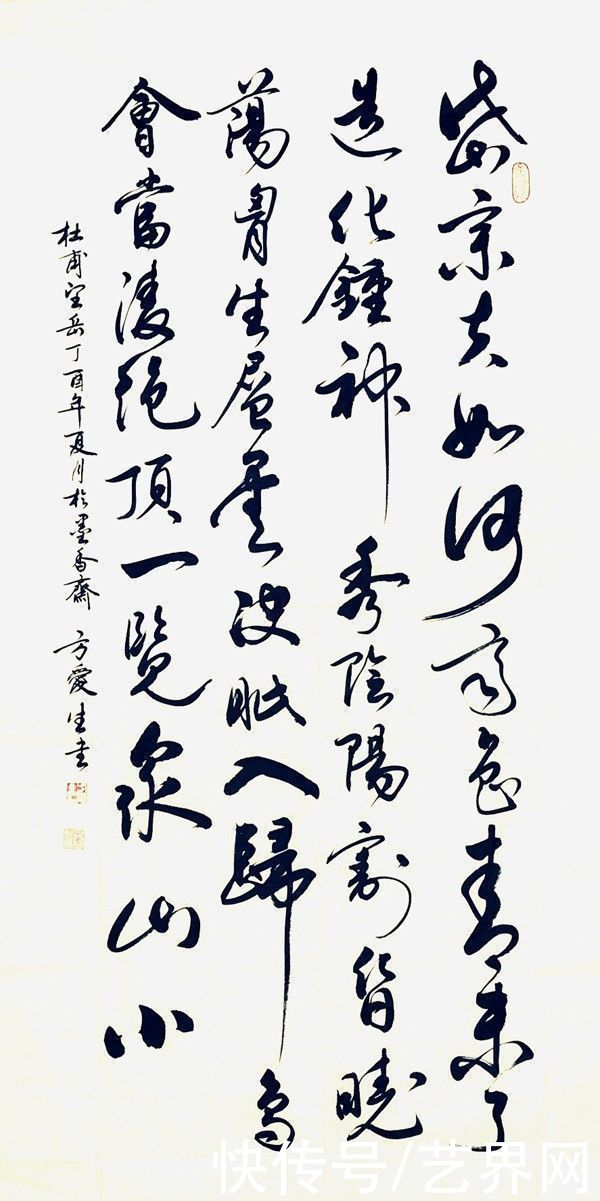 岱宗夫如何齊魯青未了
造化鍾神秀陰陽割昏曉
蕩胷生層雲決眦入歸鳥
會當淩絕頂一覽衆山小
杜甫望岳丁酉年夏月於墨香齋 方愛生書
快传号/艺界网